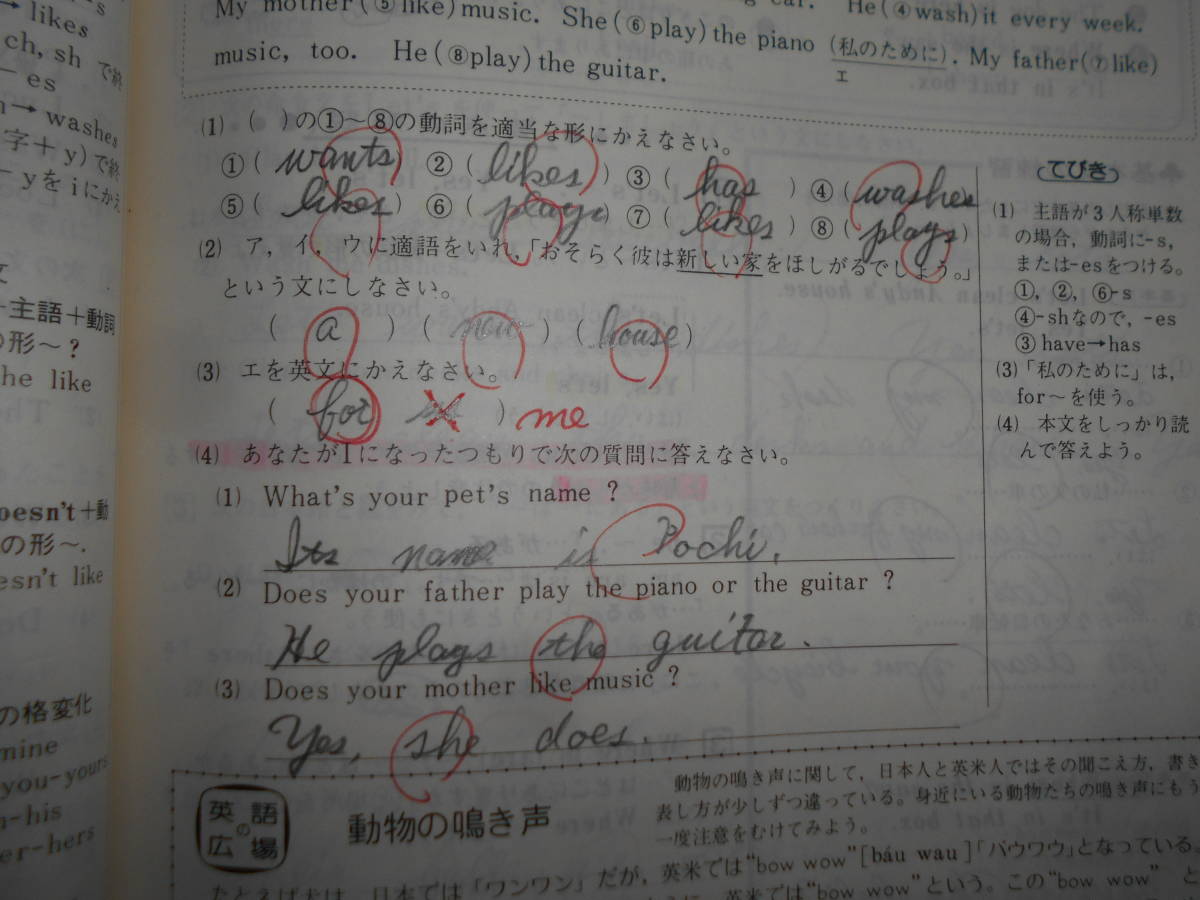 car. He(④wash)it every week.
My mother(⑤like)music. She(⑥play)the piano (私のために). My father(⑦like)
エ
music, too. He(⑧play)the guitar.
(1) ( )の①〜⑧の動詞を適当な形にかえなさい。
①( wants ) ②( likes ) ③( has ) ④( washes
⑤( likes ) ⑥( plays ) ⑦( likes ) ⑧( plays )
(2) ア,イ,ウに適語をいれ,「おそらく彼は新しい家をほしがるでしょう。」
という文にしなさい。
( a ) ( new ) ( house )
(3) エを英文にかえなさい。
( for ) me
(4) あなたがIになったつもりで次の質問に答えなさい。
(1) What's your pet's name ?
Its name is Pochi.
(2) Does your father play the piano or the guitar ?
He plays the guitar.
(3) Does your mother like music ?
Yes, she does.
てびき
(1) 主語が3人称単数
の場合,動詞に-s,
または-esをつける。
①,②,⑥-s
④-shなので,-es
③have→has
(3)「私のために」は,
for〜を使う。
(4) 本文をしっかり読
んで答えよう。
→ likes
ch, sh で終
− es
→ washes
字+y)で終
− yをiにかえ
文
−主語+動詞
の形〜?
he like
oesn't+動
の形〜.
esn't like
の格変化
mine
you-yours
-his
er-hers
英語の広場
動物の鳴き声
動物の鳴き声に関して,日本人と英米人ではその聞こえ方,書き
表し方が少しずつ違っている。身近にいる動物たちの鳴き声にもう
一度注意をむけてみよう。
たとえば犬は,日本では「ワンワン」だが,英米では"bow wow"[báu wau]「バウワウ」となっている。
英米では"bow wow"という。この"bow wow" と